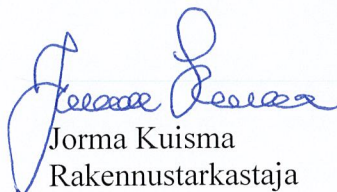 Jorma Kuisma
Rakennustarkastaja